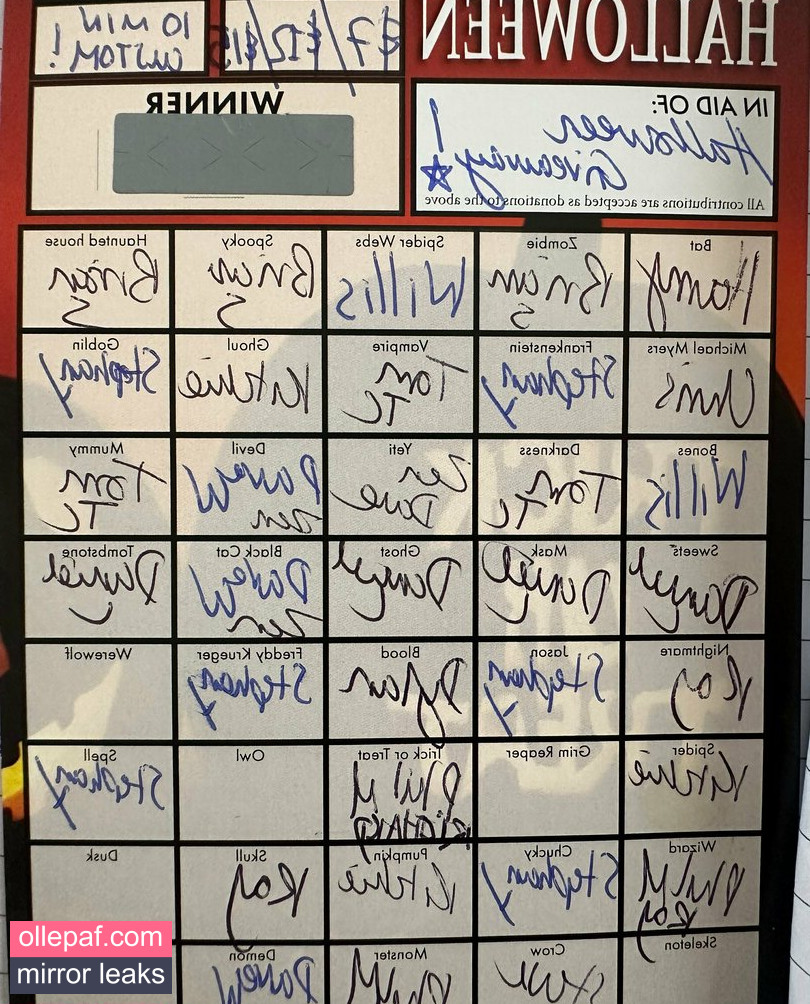 HALLOWEEN
$7/$12/$15
10 MIN
CUSTOM!
IN AID OF:
Halloween
Giveaway!
All contributions are accepted as donations to the above
WINNER
Bat Zombie Spider Webs Spooky Haunted house
Harry Brian Willis Brian Brian
S S S
Michael Myers Frankenstein Vampire Ghoul Goblin
Chris Stephany Tom Ritchie Stephany
TC
Bones Darkness Yeti Devil Mummy
Willis Tom Zen Davey Tom
TC Dave Zen TC
Sweets Mask Ghost Black Cat Tombstone
Daryl Daniel Daryl Davey Daniel
Zen
Nightmare Jason Blood Freddy Krueger Werewolf
Roy Stephany Dylan Stephany
Spider Grim Reaper Trick or Treat Owl Spell
Ritchie Phil M Stephany
RICHARD
Wizard Chucky Pumpkin Skull Dusk
Phil M Stephany Ritchie Roy
Roy
Skeleton Crow Monster Demon
Steve Phil M Davey
ollepaf.com
mirror leaks